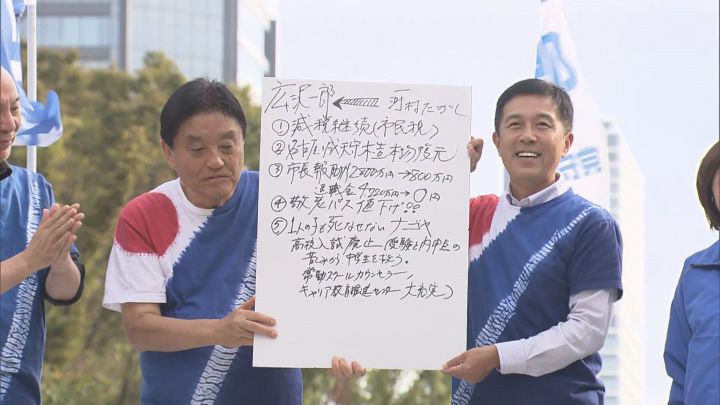 広沢一郎 ← 河村たかし
①減税継続(市民税)
②名古屋城天守木造物復元
③市長報酬2800万円→800万円
退職金4220万円→〇円
④敬老パス値下げ!!
⑤1人の子も死なせないナゴヤ
高校入試廃止(受験と内申点の
苦しみから中学生を救う。
常勤スクールカウンセラー、
キャリア教育推進センター大充実)